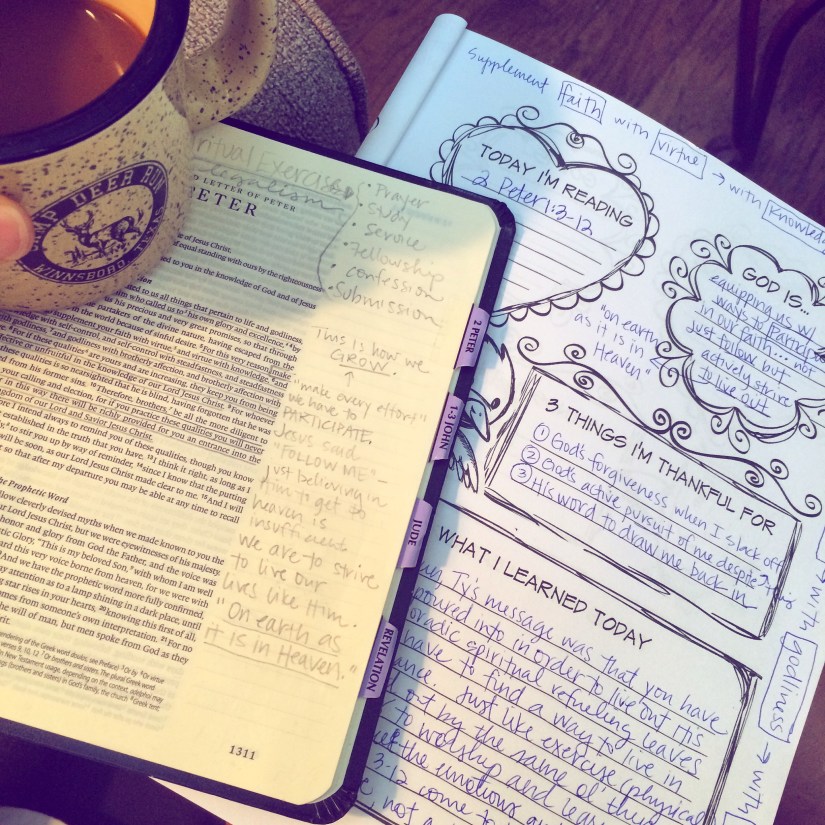 CAMP DEER RUN
WINNSBORO, TEXAS
Spiritual Exercises
legalism
• Prayer
• Study
• Service
• Fellowship
• Confession
• Submission
LETTER OF PETER
PETER
of Jesus Christ,
of equal standing with ours by the righteousness
to you in the knowledge of God and of Jesus
to us all things that pertain to life and godliness,
who called us to his own glory and excellence, by
his precious and very great promises, so that through
partakers of the divine nature, having escaped from the
in the world because of sinful desire. For this very reason, make
supplement your faith with virtue, and virtue with knowledge, and
knowledge with self-control, and self-control with steadfastness, and steadfastness
godliness, and godliness with brotherly affection, and brotherly affection with
If these qualities are yours and are increasing, they keep you from being
or unfruitful in the knowledge of our Lord Jesus Christ. For whoever
these qualities is so nearsighted that he is blind, having forgotten that he was
from his former sins. Therefore, brothers, be all the more diligent to
your calling and election, for if you practice these qualities you will never
in this way there will be richly provided for you an entrance into the
kingdom of our Lord and Savior Jesus Christ.
I intend always to remind you of these qualities, though you know
established in the truth that you have. I think it right, as long as I
to stir you up by way of reminder, since I know that the putting
will be soon, as our Lord Jesus Christ made clear to me. And I will
so that after my departure you may be able at any time to recall
Prophetic Word
follow cleverly devised myths when we made known to you the
Lord Jesus Christ, but we were eyewitnesses of his majesty.
honor and glory from God the Father, and the voice was
Glory, "This is my beloved Son, with whom I am well
this very voice borne from heaven, for we were with
And we have the prophetic word more fully confirmed,
pay attention as to a lamp shining in a dark place, until
star rises in your hearts, knowing this first of all,
comes from someone's own interpretation. For no
the will of man, but men spoke from God as they
1311
This is how we
GROW.
"make every effort"
We have to
PARTICIPATE.
Jesus said
"FOLLOW ME" –
Just believing in
Him to get to
heaven is
insufficient
We are to strive
to live our
lives like Him.
"On earth as
it is in Heaven."
2 PETER
1-3 JOHN
JUDE
REVELATION
Supplement faith with virtue → with knowledge
with godliness → with
TODAY I'M READING
2 Peter 1:3-12
"on earth
as it is in
Heaven"
GOD IS...
equipping us w/
ways to
in our faith... not
just follow but
actively strive
to live out
3 THINGS I'M THANKFUL FOR
① God's forgiveness when I slack off
② God's active pursuit of me despite this
③ His word to draw me back in
WHAT I LEARNED TODAY
Ty's message was that you have
poured into in order to live out His
sporadic spiritual refueling leaves
have to find a way to live in
Just like exercise (physical
out by the same ol' thing
to worship and
the emotions
3-12 come to
not a